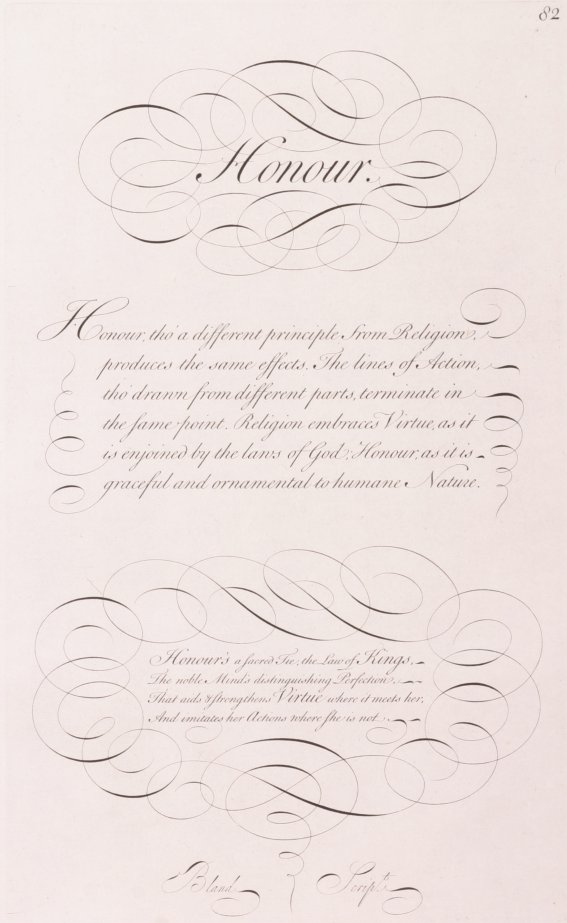 82
Honour.
Honour, tho' a different principle from Religion,
produces the same effects. The lines of Action,
tho' drawn from different parts, terminate in
the same point. Religion embraces Virtue, as it
is enjoined by the laws of God; Honour, as it is
graceful and ornamental to humane Nature.
Honour's a sacred Tie, the Law of Kings,
The noble Mind's distinguishing Perfection,
That aids & strengthens Virtue where it meets her,
And imitates her Actions where she is not.
Bland Script.